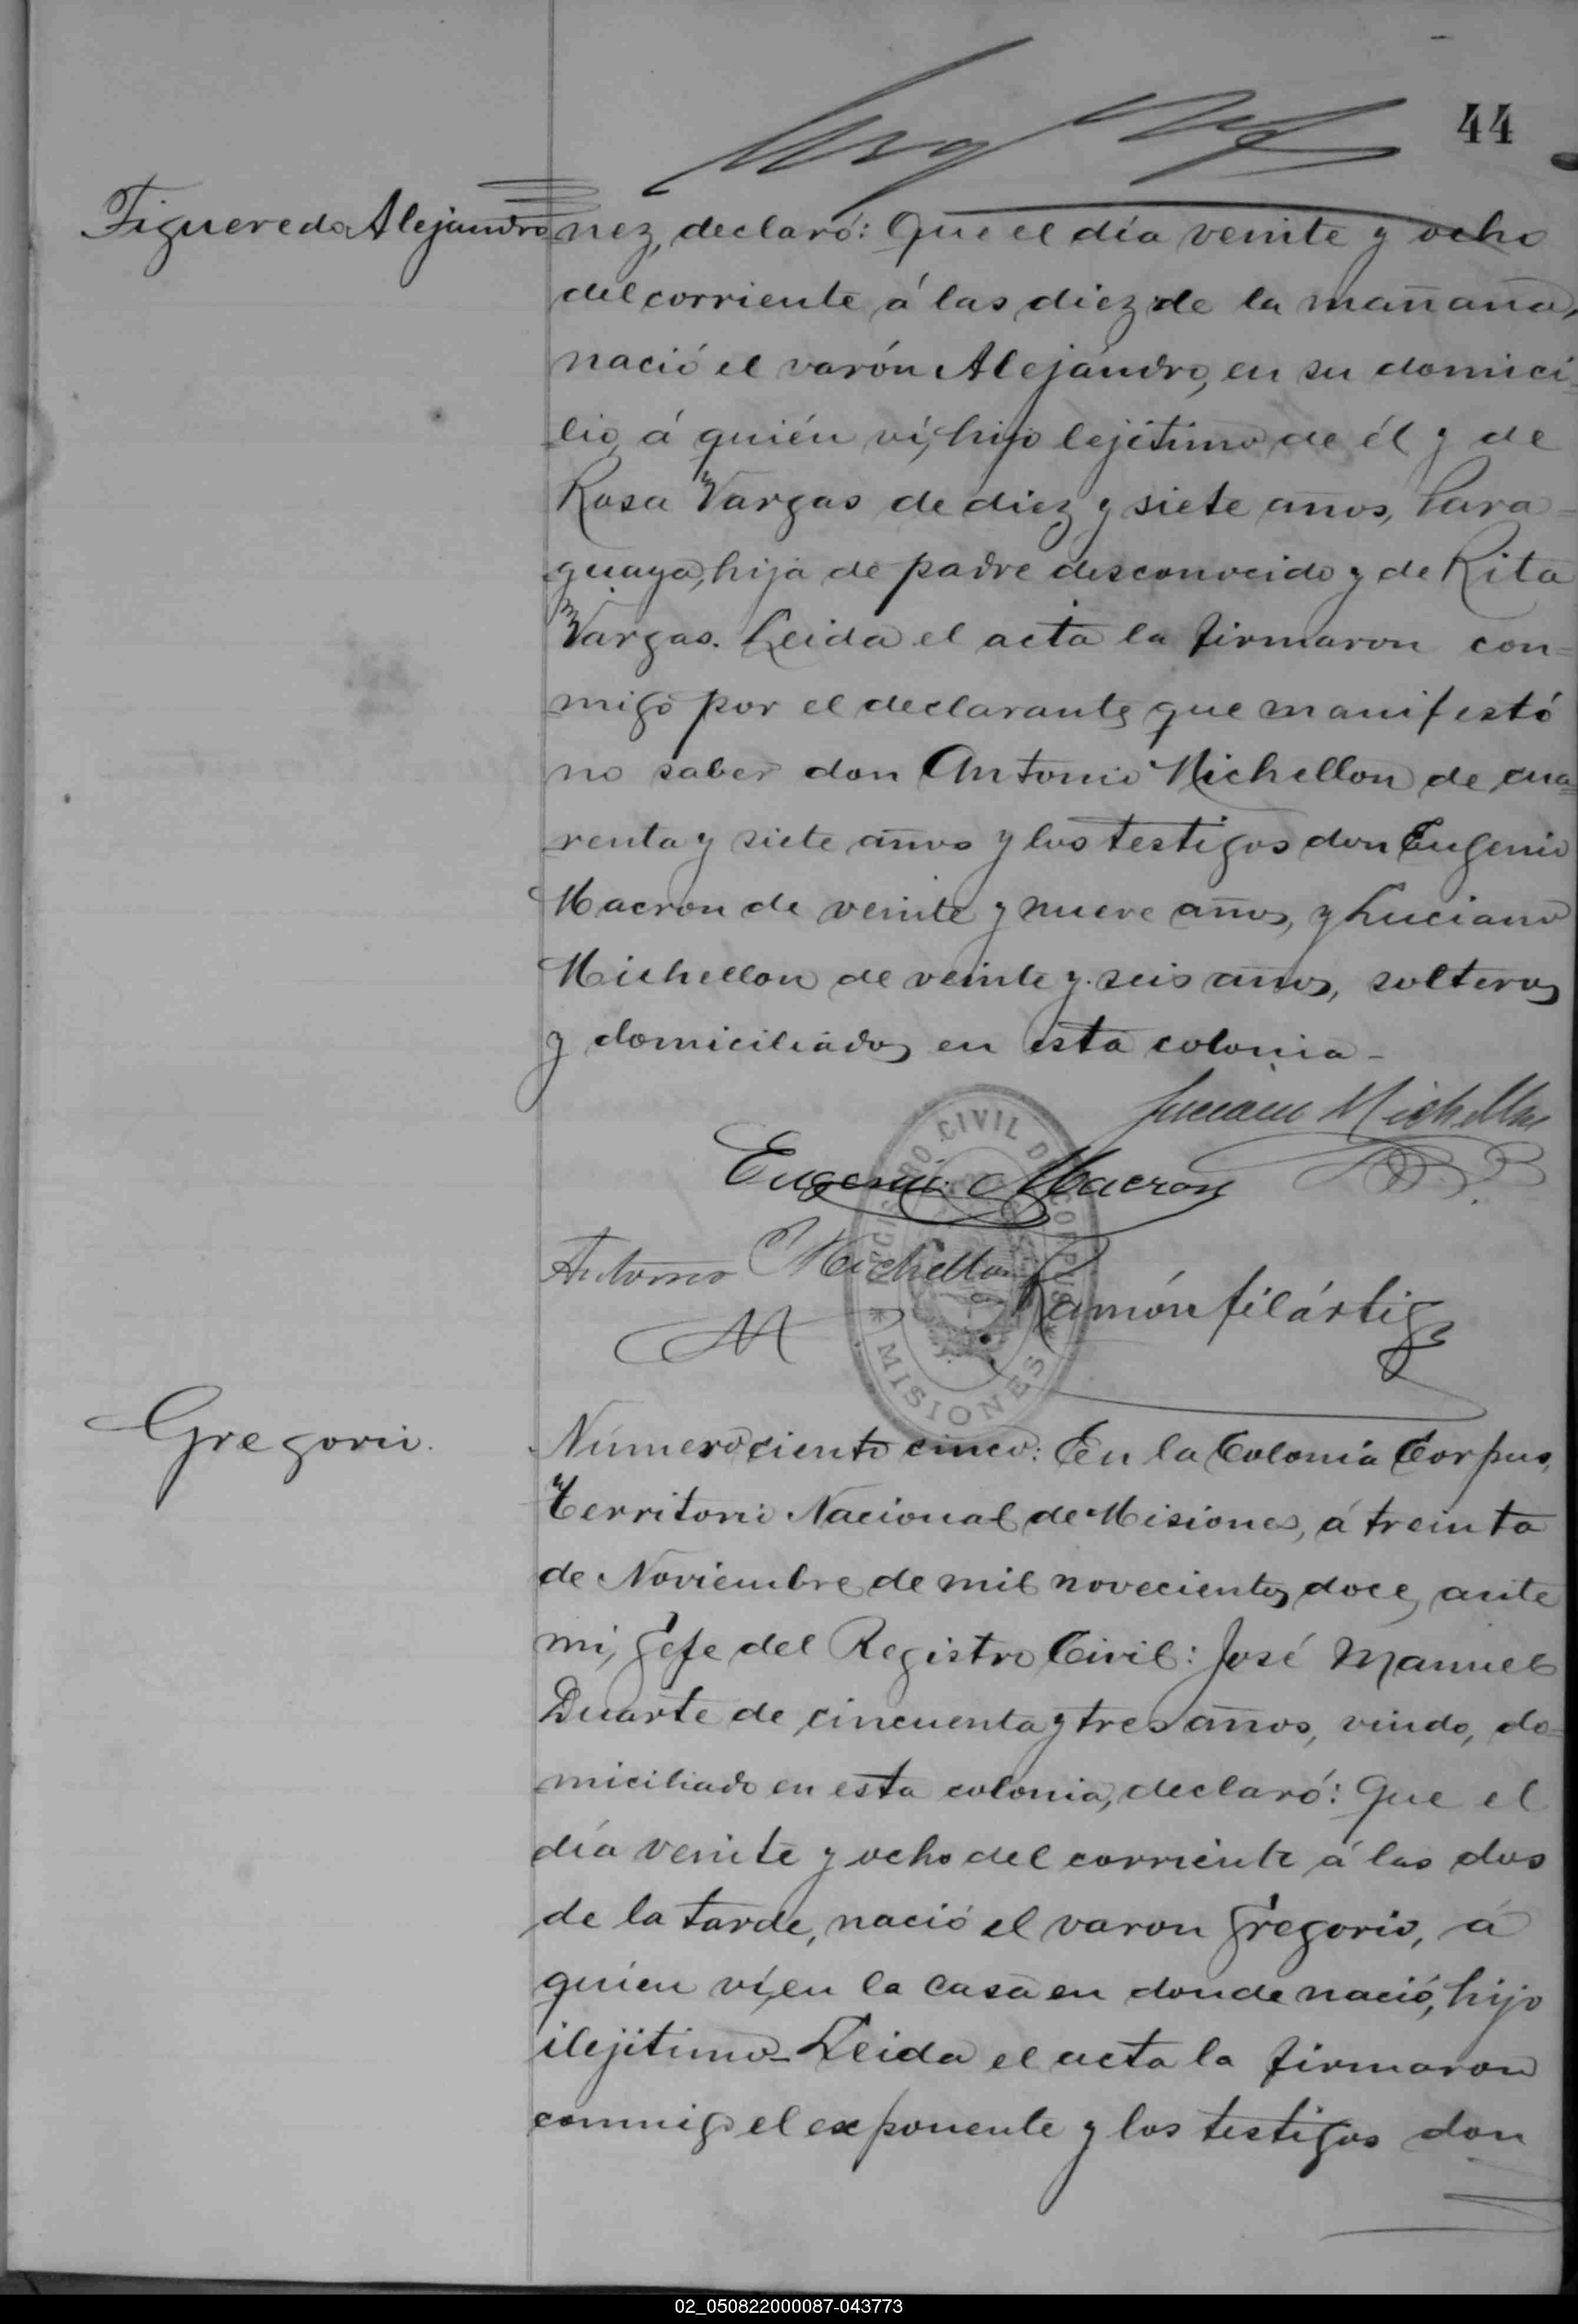 44
Figueredo Alejandro
nez, declaró: Que el día veinte y ocho
del corriente á las diez de la mañana,
nació el varón Alejandro, en su domici-
lio, á quién ví, hijo lejítimo de él y de
Rosa Vargas de diez y siete años, Para-
guaya, hija de padre desconocido y de Rita
Vargas. Leida el acta la firmaron con-
migo por el declarante que manifestó
no saber don Antonio Michellon de cua-
renta y siete años y los testigos don Eugenio
Macron de veinte y nueve años, y Luciano
Michellon de veinte y seis años, solteros
y domiciliados en esta colonia-
Luciano Michellon
Eugenio Macron
Antonio Michellon
Ramón Filártiga
REGISTRO CIVIL DE CORPUS
* MISIONES *
Gregorio.
Número ciento cinco: En la Colonia Corpus,
Territorio Nacional de Misiones, á treinta
de Noviembre de mil novecientos doce, ante
mi, Jefe del Registro Civil: José Manuel
Duarte de cincuenta y tres años, viudo, do-
miciliado en esta colonia, declaró: Que el
día veinte y ocho del corriente á las dos
de la tarde, nació el varon Gregorio, á
quien ví, en la casa en donde nació, hijo
ilejitimo- Leida el acta la firmaron
conmigo el exponente y los testigos don
02_050822000087-043773